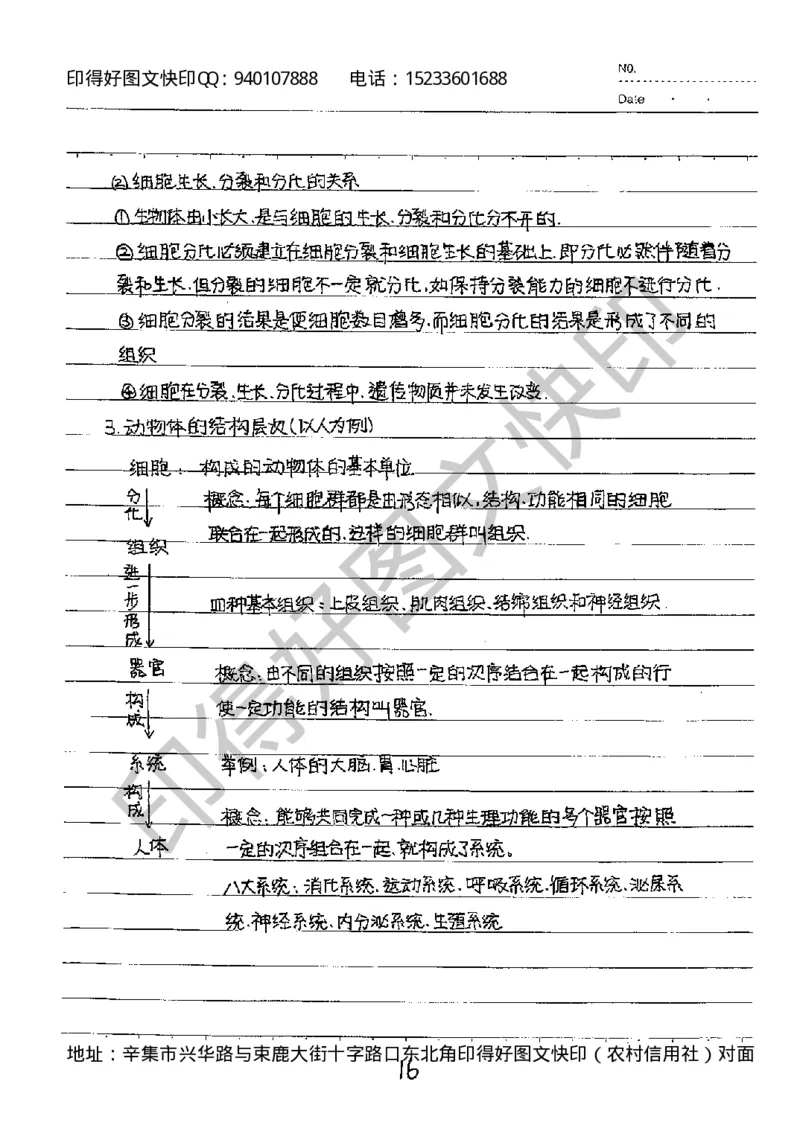 印得好图文快印QQ：940107888 电话：15233601688
No.
Date
(2)细胞生长、分裂和分化的关系
①生物体由小长大,是与细胞的生长、分裂和分化分不开的.
②细胞分化必须建立在细胞分裂和细胞生长的基础上,即分化必然伴随着分
裂和生长,但分裂的细胞不一定就分化,如保持分裂能力的细胞不进行分化.
③细胞分裂的结果是使细胞数目增多,而细胞分化的结果是形成了不同的
组织
④细胞在分裂、生长、分化过程中,遗传物质并未发生改变.
3.动物体的结构层次(以人为例)
细胞: 构成的动物体的基本单位
分化 概念:每个细胞群都是由形态相似,结构、功能相同的细胞
联合在一起形成的,这样的细胞群叫组织.
组织
进一步形成 四种基本组织:上皮组织、肌肉组织、结缔组织和神经组织
器官 概念:由不同的组织按照一定的次序结合在一起构成的行
构成 使一定功能的结构叫器官.
系统 举例:人体的大脑、胃、心脏
构成 概念:能够共同完成一种或几种生理功能的多个器官按照
人体 一定的次序组合在一起,就构成了系统。
八大系统:消化系统、运动系统、呼吸系统、循环系统、泌尿系
统、神经系统、内分泌系统、生殖系统
地址：辛集市兴华路与束鹿大街十字路口东北角印得好图文快印（农村信用社）对面
16
印得好图文快印